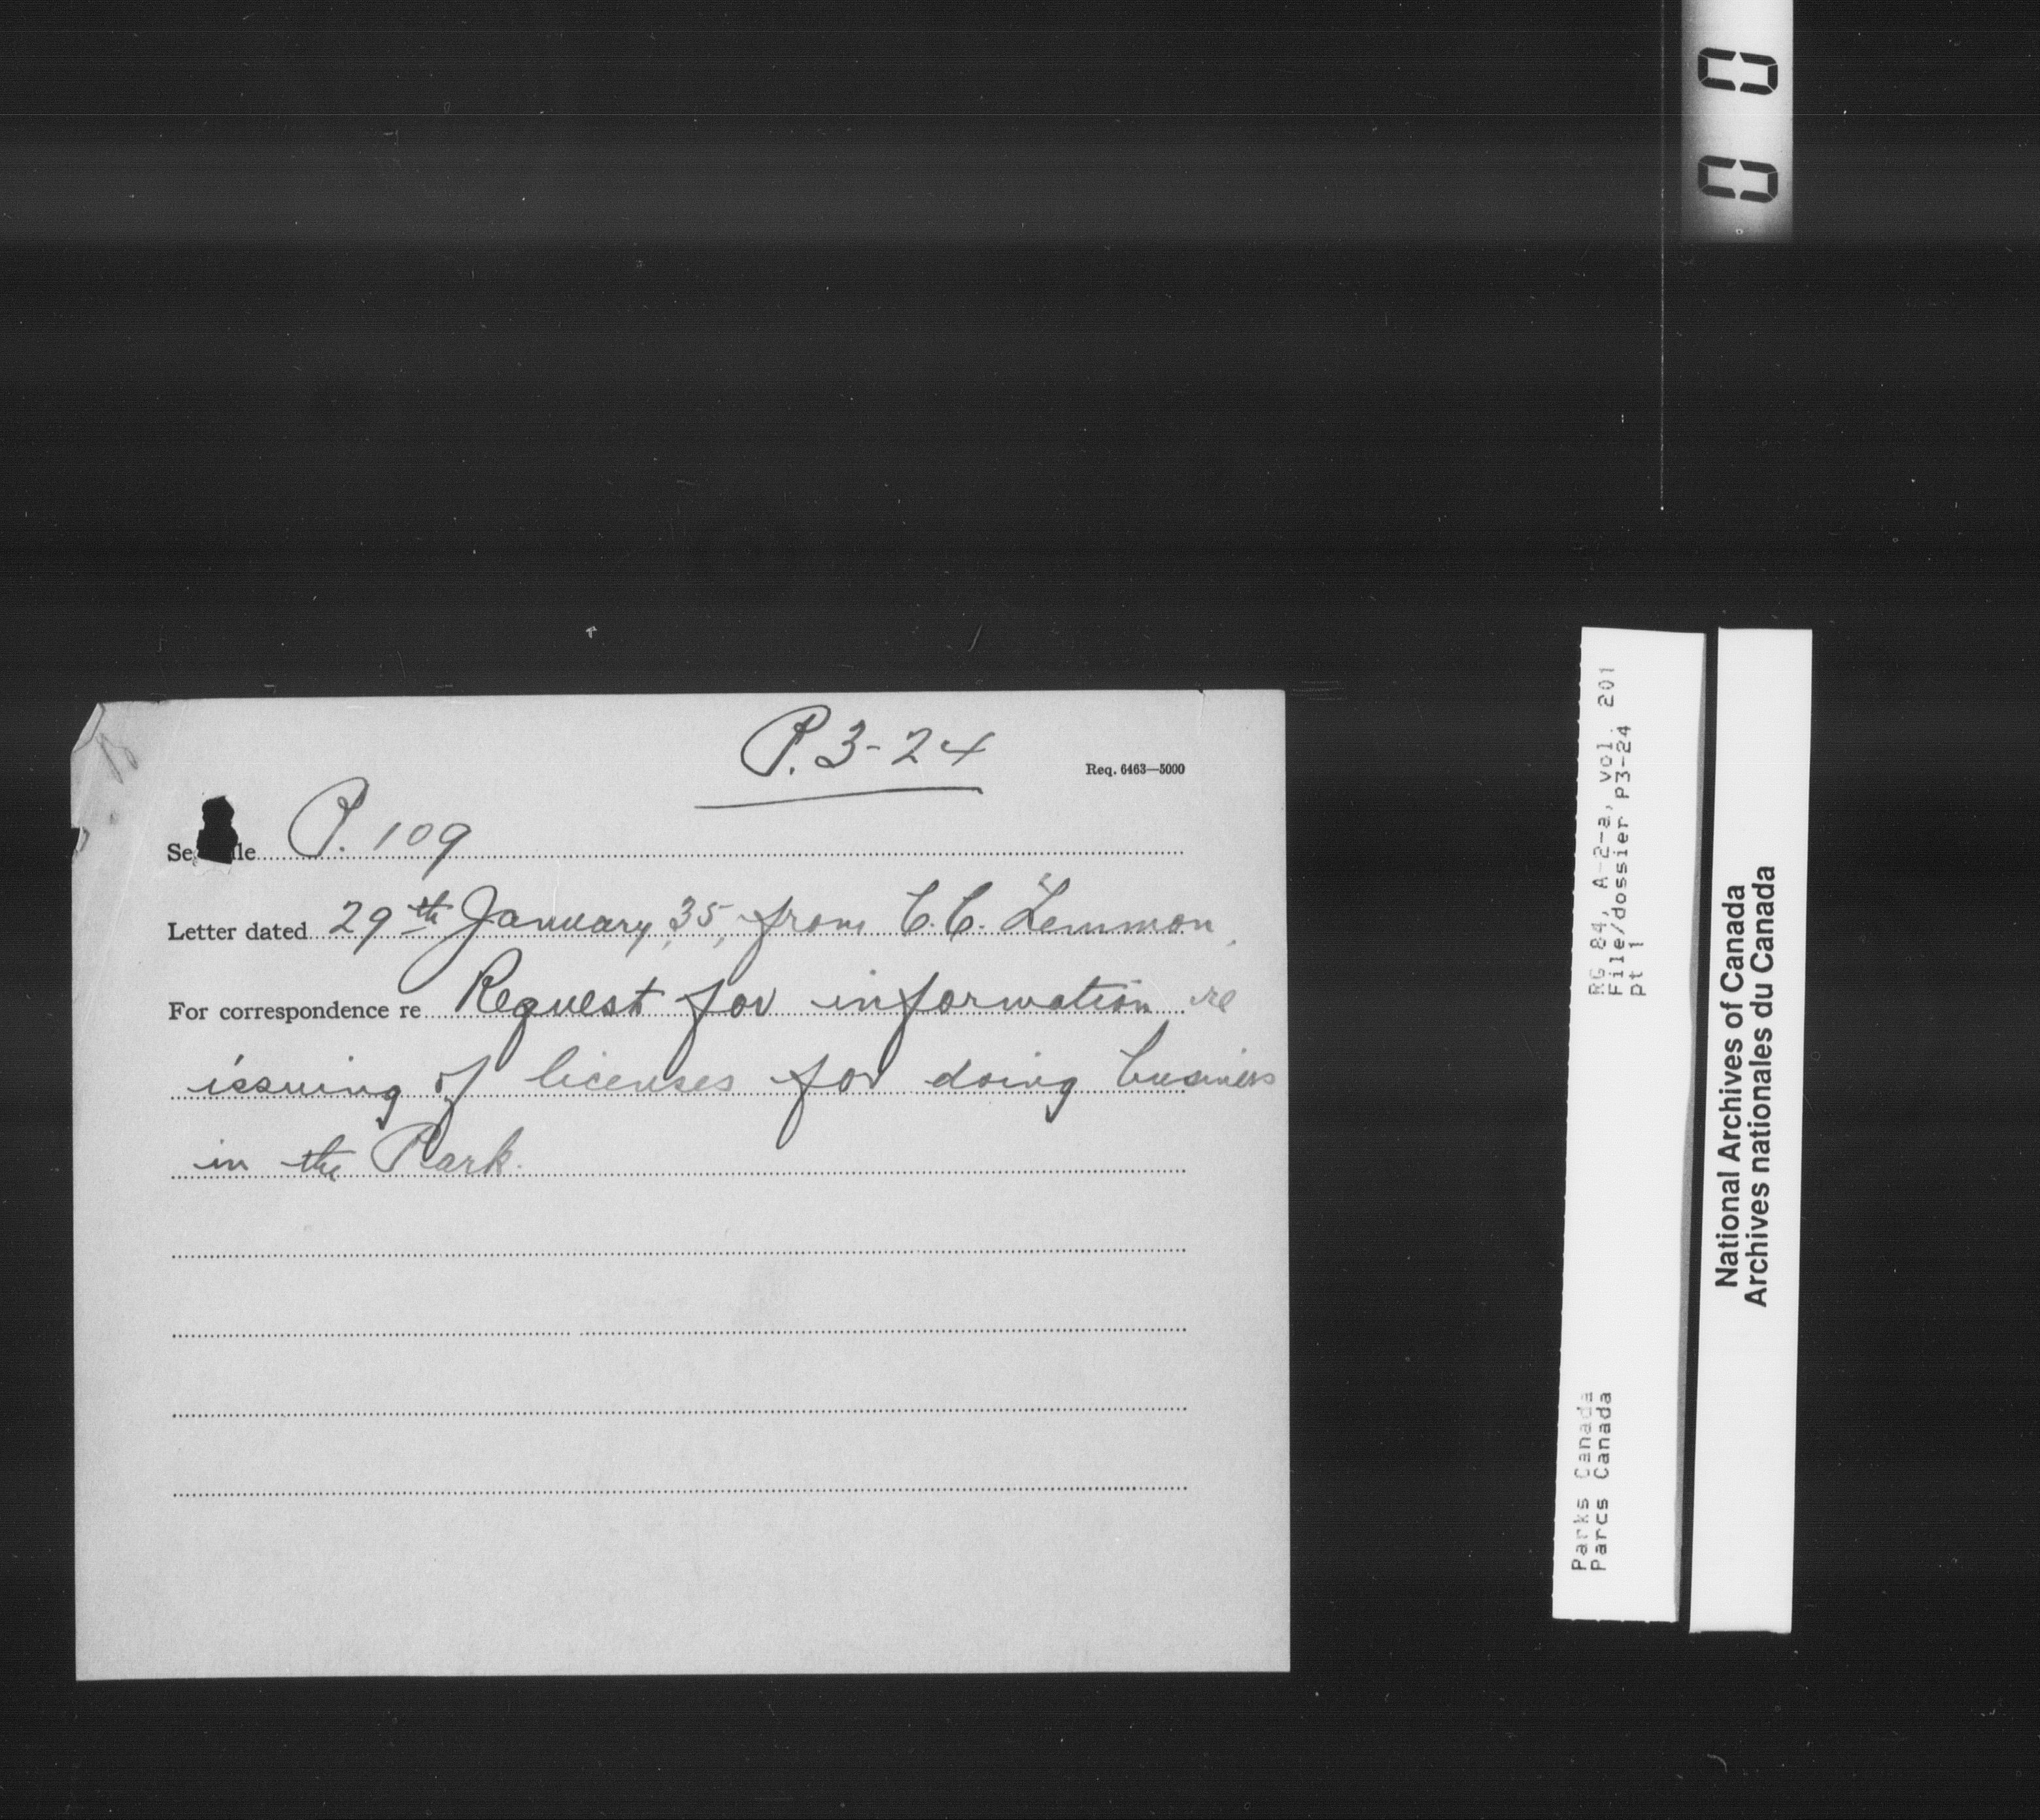 00
P. 3-24
Req. 6463—5000
Se le P. 109
Letter dated 29th January, 35, from C.C. Lemmon,
For correspondence re Request for information re
issuing of licenses for doing business
in the Park.
RG 84, A-2-a, vol. 201
File/dossier P3-24
pt 1
Parks Canada
Parcs Canada
National Archives of Canada
Archives nationales du Canada